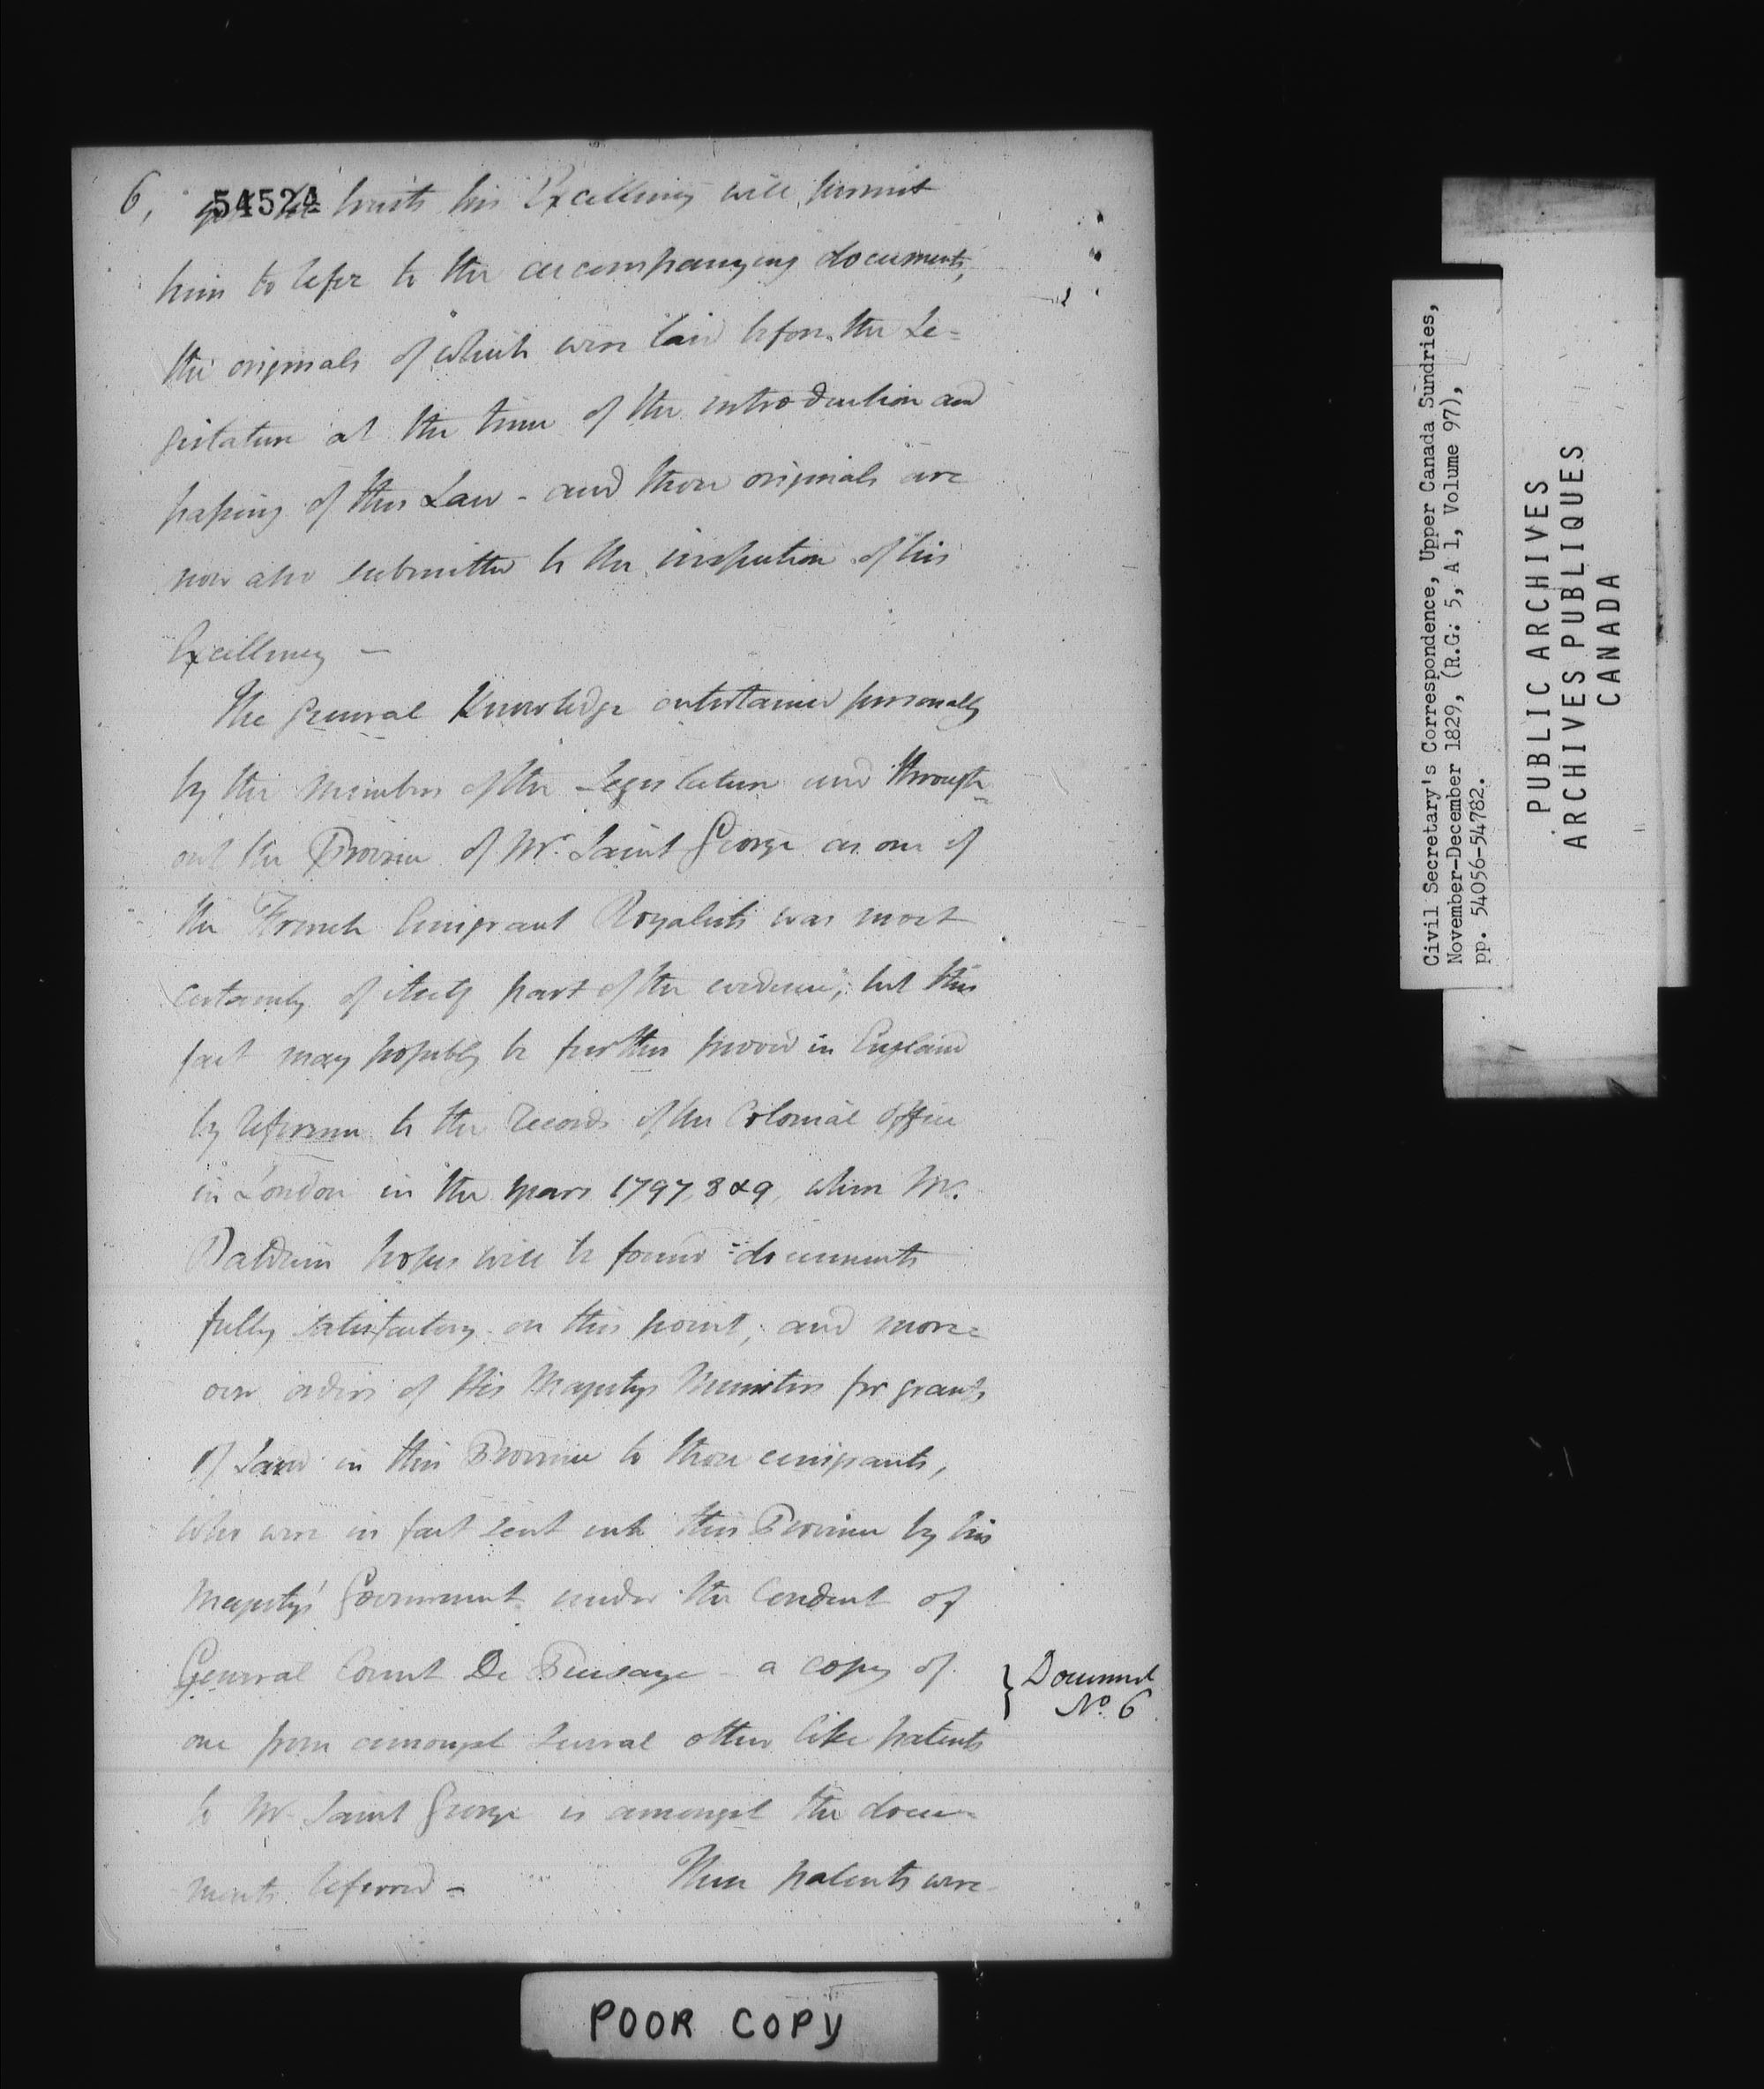 6,
54524
trusts his Excellency will permit
him to refer to the accompanying documents,
the originals of which were laid before the Le=
gislature at the time of the introduction and
passing of this Law - and those originals are
now also submitted to the inspection of his
Excellency —
The general Knowledge entertained personally
by the Members of the Legislature and through=
out the Province of Mr. Saint George as one of
the French Emigrant Royalists was most
certainly of itself part of the evidence; but this
fact may possibly be further proved in England
by reference to the records of the Colonial Office
in London in the years 1797, 8 & 9, where Mr.
Baldwin hopes will be found documents
fully satisfactory on this point; and more=
over orders of His Majestys Ministers for grants
of Land in this Province to those emigrants,
who were in fact sent into this Province by his
Majesty's Government under the Conduct of
General Count De Puisaye - a copy of
} Document
No. 6
one from amongst several other like patents
to Mr Saint George is amongst the docu=
ments referred - These patents were
POOR COPY
Civil Secretary's Correspondence, Upper Canada Sundries,
November-December 1829, (R.G: 5, A 1, Volume 97),
pp. 54056-54782.
PUBLIC ARCHIVES
ARCHIVES PUBLIQUES
CANADA